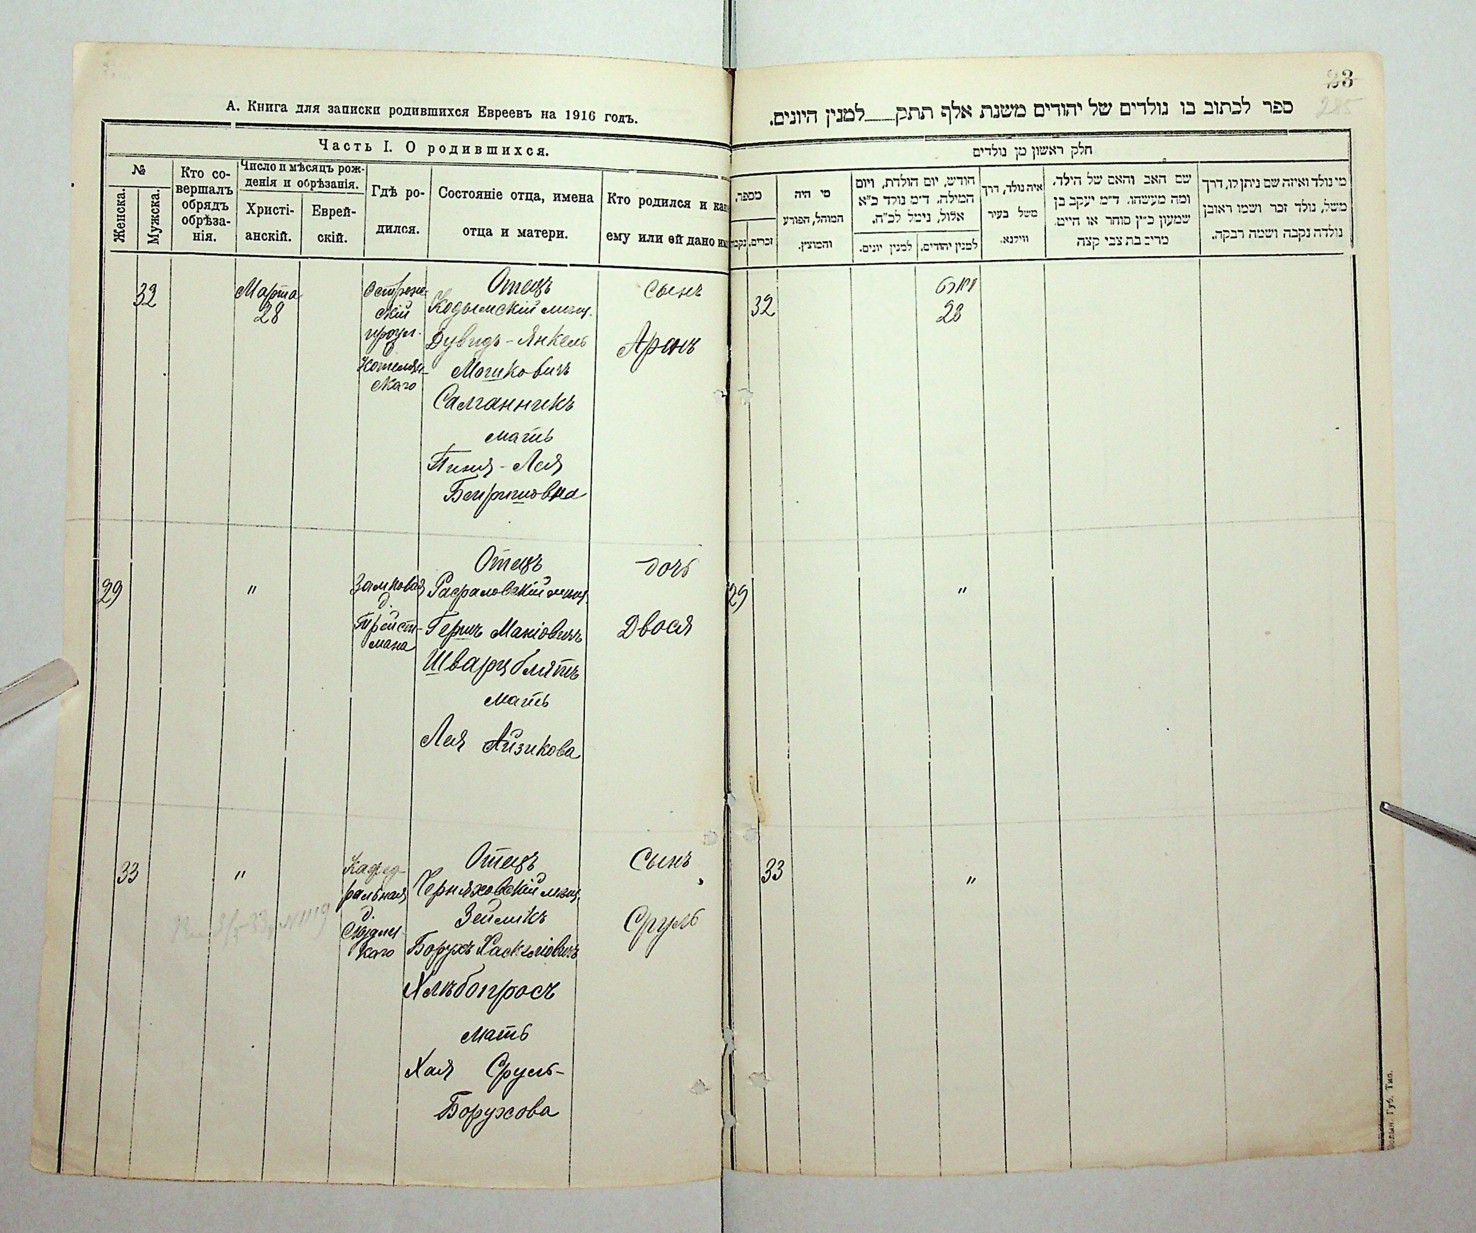 А. Книга для записки родившихся Евреевъ на 1916 годъ.
Часть I. О родившихся.
№
Женска.
Мужска.
Кто со-
вершалъ
обрядъ
обрѣза-
нія.
Число и мѣсяцъ рож-
денія и обрѣзанія.
Христі-
анскій.
Еврей-
скій.
Гдѣ ро-
дился.
Состояніе отца, имена
отца и матери.
Кто родился и как
ему или ей дано им
32
Марта
28
скій
Отецъ
Кодымскій мѣщ.
Дувидъ-Янкель
Мошковичъ
Салганникъ
мать
Лея
Бейришовна
сынъ
Аронъ
29
"
Замковая
д.
Отецъ
мѣщ.
Гершъ
Шварцблятъ
мать
Лея Айзикова
дочь
Двося
33
"
Кафед-
ральная
д.
Отецъ
Черняховскій мѣщ.
Зейликъ
Борухъ
Хлѣбопросъ
мать
Хая Сруль-
Борухова
Сынъ
Сруль
3
285
ספר לכתוב בו נולדים של יהודים משנת אלף תתק למנין היונים.
חלק ראשון מן נולדים
מספר.
זכרים.
מי היה
המוהל, הפורע
והמוצץ.
חודש, יום הולדת, ויום
המילה, ד״מ נולד כ״א
אלול, נימל לכ״ח.
למנין יהודים.
למנין יונים.
איה נולד, דרך
משל בעיר
ווילנא.
שם האב והאם של הילד.
ומה מעשהו. ד״מ יעקב בן
שמעון כ״ץ סוחר או היים.
מרים בת צבי קצה
מי נולד ואיזה שם ניתן לו, דרך
משל, נולד זכר ושמו ראובן
נולדה נקבה ושמה רבקה.
32
23
29
"
33
"
Губ. Тип.